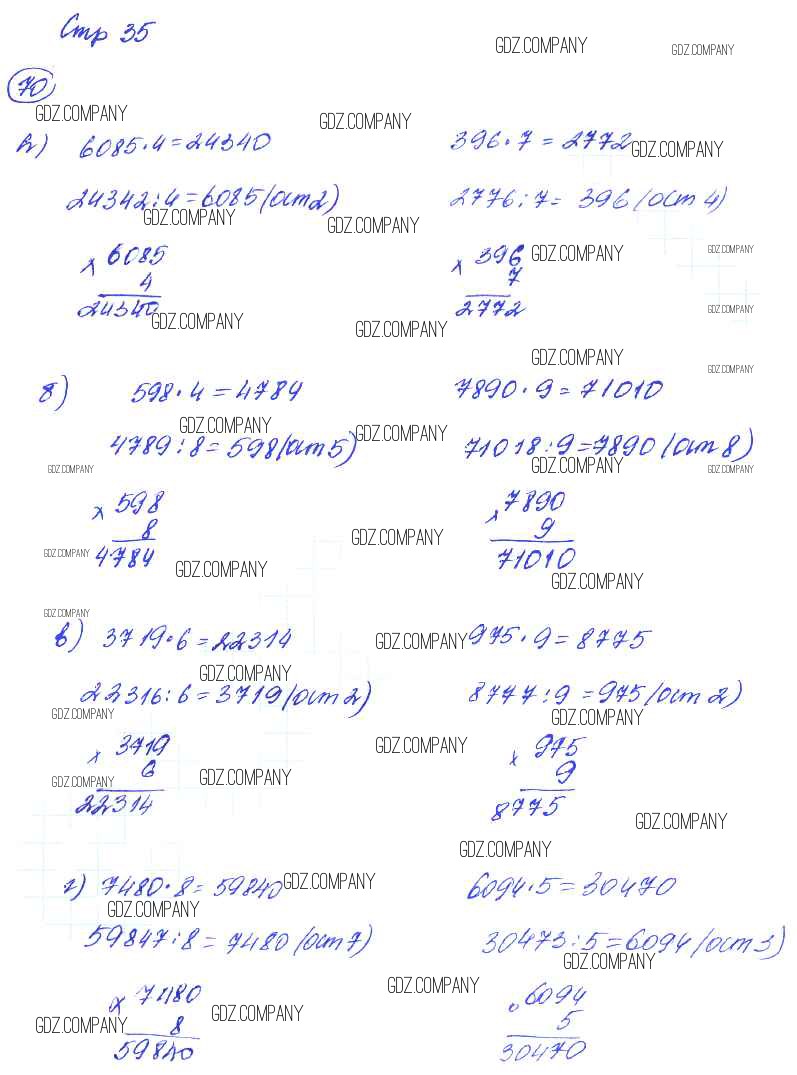 Стр 35
GDZ.COMPANY GDZ.COMPANY
70
GDZ.COMPANY GDZ.COMPANY
а) 6085·4=24340 396·7=2772 GDZ.COMPANY
24342:4=6085(ост2) 2776:7=396(ост 4)
GDZ.COMPANY GDZ.COMPANY
× 6085 × 396 GDZ.COMPANY GDZ.COMPANY
4 7
24340 2772 GDZ.COMPANY
GDZ.COMPANY GDZ.COMPANY
GDZ.COMPANY GDZ.COMPANY
б) 598·4=4784 7890·9=71010
GDZ.COMPANY GDZ.COMPANY
4789:8=598(ост5) 71018:9=7890(ост8)
GDZ.COMPANY GDZ.COMPANY GDZ.COMPANY
× 598 × 7890
8 9
GDZ.COMPANY 4784 GDZ.COMPANY 71010
GDZ.COMPANY GDZ.COMPANY
GDZ.COMPANY
в) 3719·6=22314 GDZ.COMPANY 975·9=8775
GDZ.COMPANY
22316:6=3719(ост2) 8777:9=975(ост2)
GDZ.COMPANY GDZ.COMPANY
× 3719 GDZ.COMPANY × 975
GDZ.COMPANY 6 GDZ.COMPANY 9
22314 8775
GDZ.COMPANY
GDZ.COMPANY
г) 7480·8=59840 GDZ.COMPANY 6094·5=30470
GDZ.COMPANY
59847:8=7480(ост7) 30473:5=6094(ост3)
GDZ.COMPANY
GDZ.COMPANY
× 7480 6094
GDZ.COMPANY 8 GDZ.COMPANY 5
59840 30470